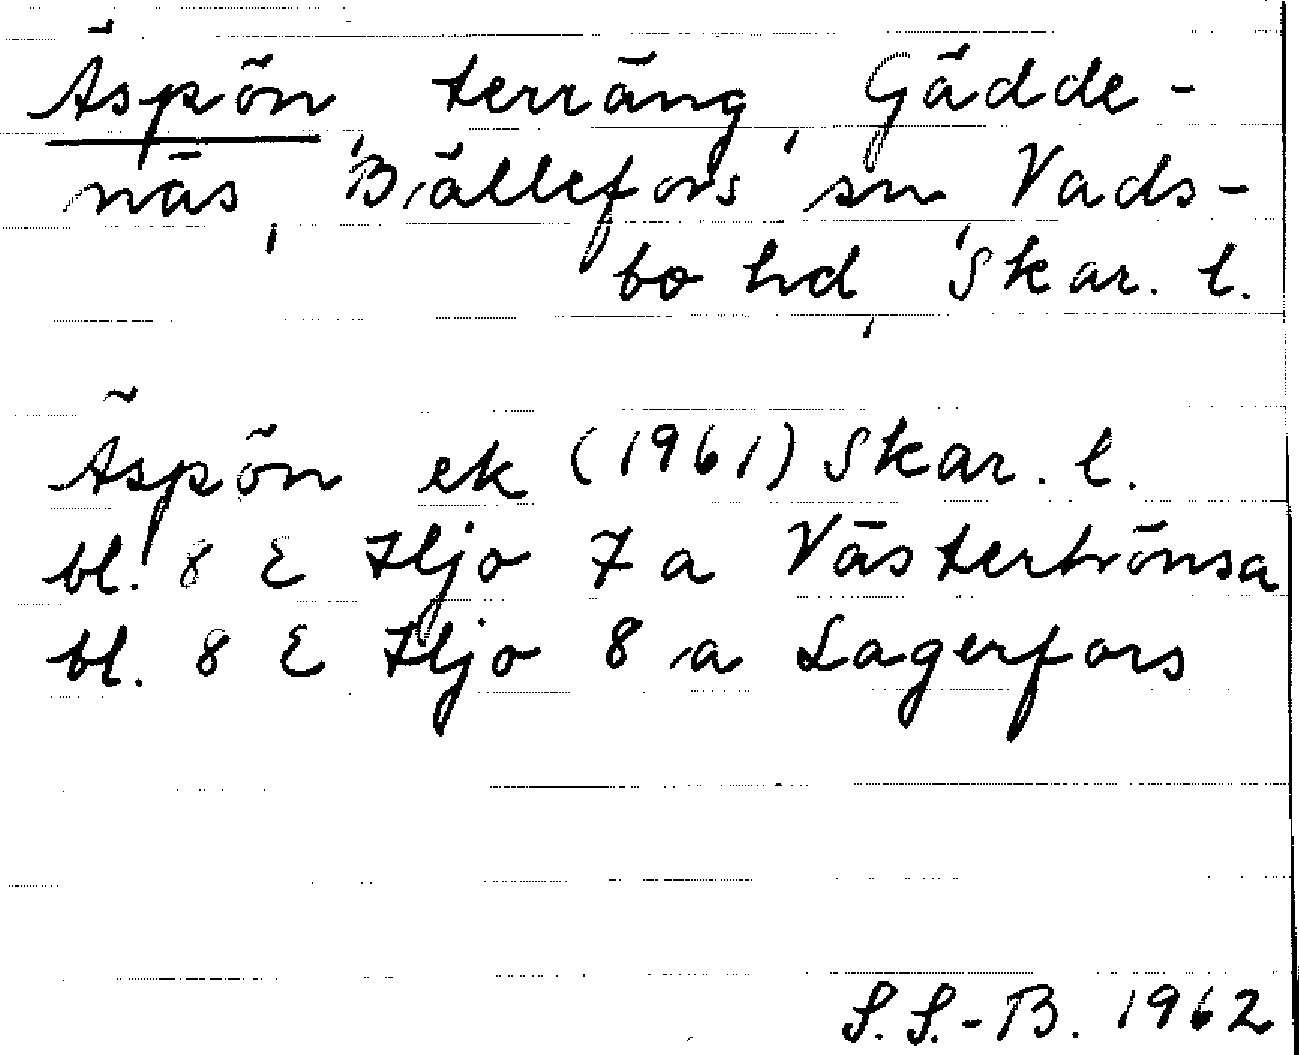 Äspön, terräng, Gädde-
näs, Bällefors sn, Vads-
bo hd, Skar. l.
Äspön ek (1961) Skar. l.
bl. 8 E Hjo 7 a Västerhönsa
bl. 8 E Hjo 8 a Lagerfors
S. S.-B. 1962